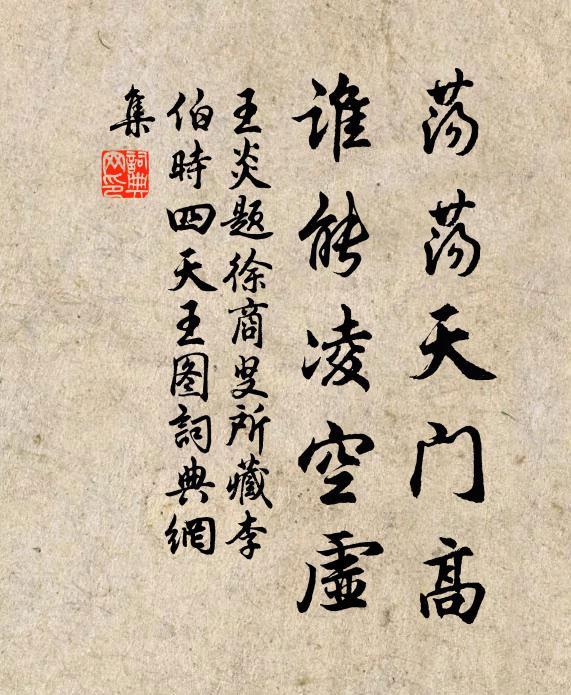 荡荡天门高
谁能凌空虚
王炎题徐商叟所藏李
伯時四天王图詞典網
集
詞典
网印